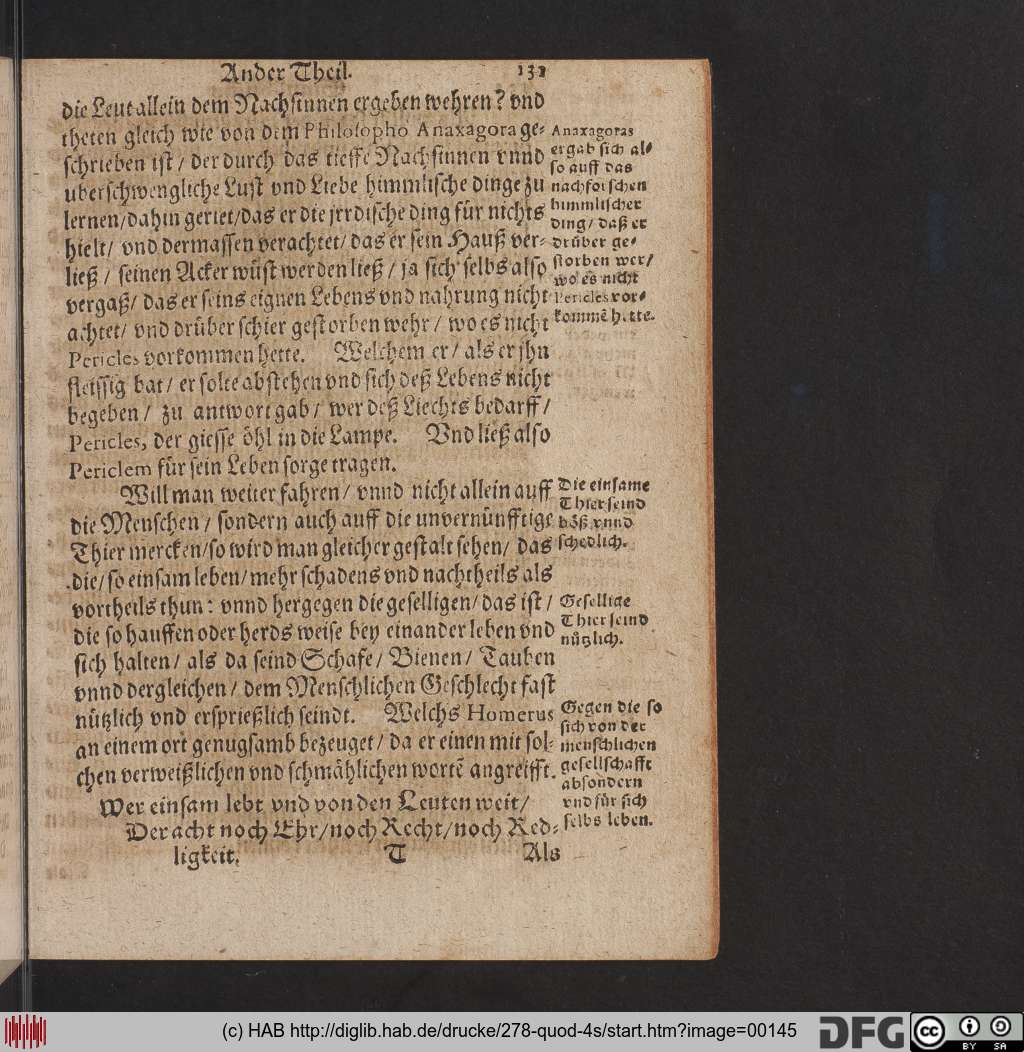 Ander Theil. 131
die Leut allein dem Nachsinnen ergeben wehren? vnd
theten gleich wie von dem Philosopho Anaxagora ge-
schrieben ist / der durch das tieffe Nachsinnen vnnd
uberschwengliche Lust vnd Liebe himmlische dinge zu
lernen/dahin geriet/das er die jrrdische ding für nichts
hielt/ vnd dermassen verachtet/ das er sein Hauß ver-
ließ / seinen Acker wüst werden ließ / ja sich selbs also
vergaß/ das er seins eignen Lebens vnd nahrung nicht
achtet/ vnd drüber schier gestorben wehr / wo es nicht
Pericles vorkommen hette. Welchem er / als er jhn
fleissig bat / er solte abstehen vnd sich deß Lebens nicht
begeben / zu antwort gab / wer deß Liechts bedarff /
Pericles, der giesse öhl in die Lampe. Vnd ließ also
Periclem für sein Leben sorge tragen.
Will man weiter fahren / vnnd nicht allein auff
die Menschen / sondern auch auff die unvernünfftige
Thier mercken/so wird man gleicher gestalt sehen/ das
die/ so einsam leben/ mehr schadens vnd nachtheils als
vortheils thun: vnnd hergegen die geselligen/ das ist /
die so hauffen oder herds weise bey einander leben vnd
sich halten / als da seind Schafe / Bienen / Tauben
vnnd dergleichen / dem Menschlichen Geschlecht fast
nützlich vnd ersprießlich seindt. Welchs Homerus
an einem ort genugsamb bezeuget / da er einen mit sol-
chen verweißlichen vnd schmählichen wortē angreifft.
Wer einsam lebt vnd von den Leuten weit /
Der acht noch Ehr/noch Recht/noch Red-
ligkeit. T Als
Anaxagoras
ergab sich al-
so auff das
nachforschen
himmlischer
ding/ daß er
drüber ge-
storben wer/
wo es nicht
Pericles vor-
kommē hette.
Die einsame
Thier seind
böß vnnd
schedlich.
Gesellige
Thier seind
nützlich.
Gegen die so
sich von der
menschlichen
gesellschafft
absondern
vnd für sich
selbs leben.
(c) HAB http://diglib.hab.de/drucke/278-quod-4s/start.htm?image=00145
DFG
cc
BY SA